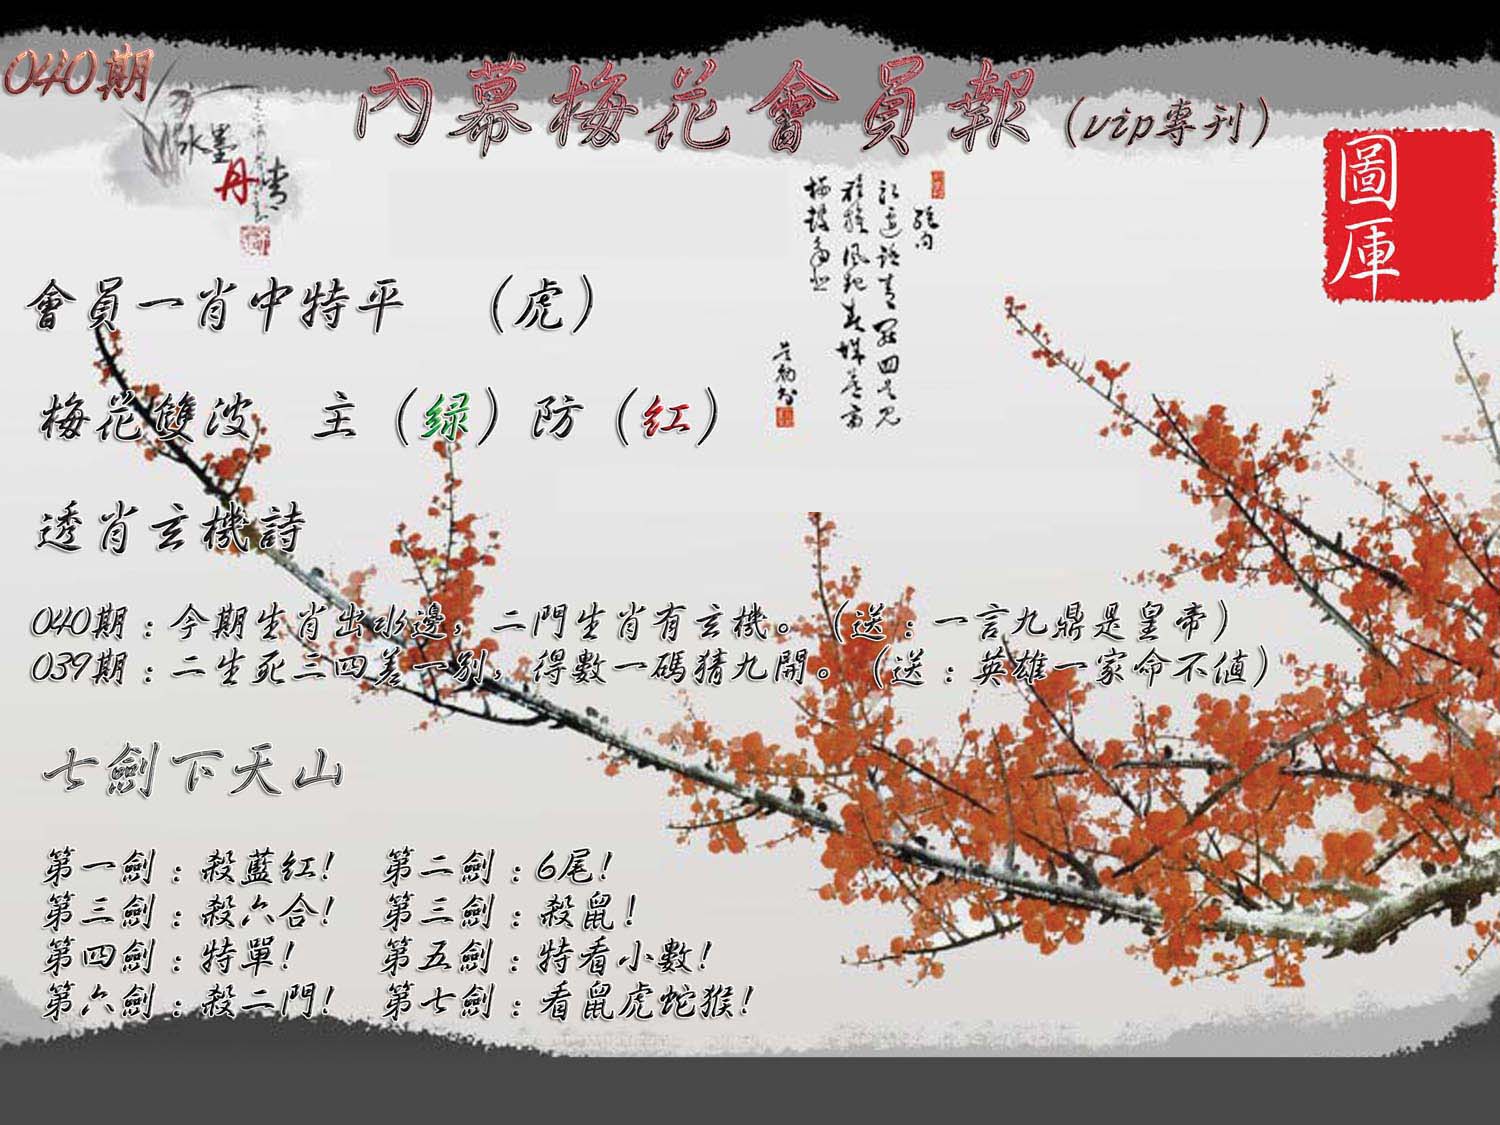 040期
內幕梅花會員報（vip專刊）
水墨
丹青
圖庫
會員一肖中特平 （虎）
梅花雙波 主（绿）防（红）
透肖玄機詩
040期：今期生肖出水邊，二門生肖有玄機。（送：一言九鼎是皇帝）
039期：二生死三四差一别，得數一碼猜九開。（送：英雄一家命不值）
七劍下天山
第一劍：殺藍红! 第二劍：6尾!
第三劍：殺六合! 第三劍：殺鼠!
第四劍：特單! 第五劍：特看小數!
第六劍：殺二門! 第七劍：看鼠虎蛇猴!